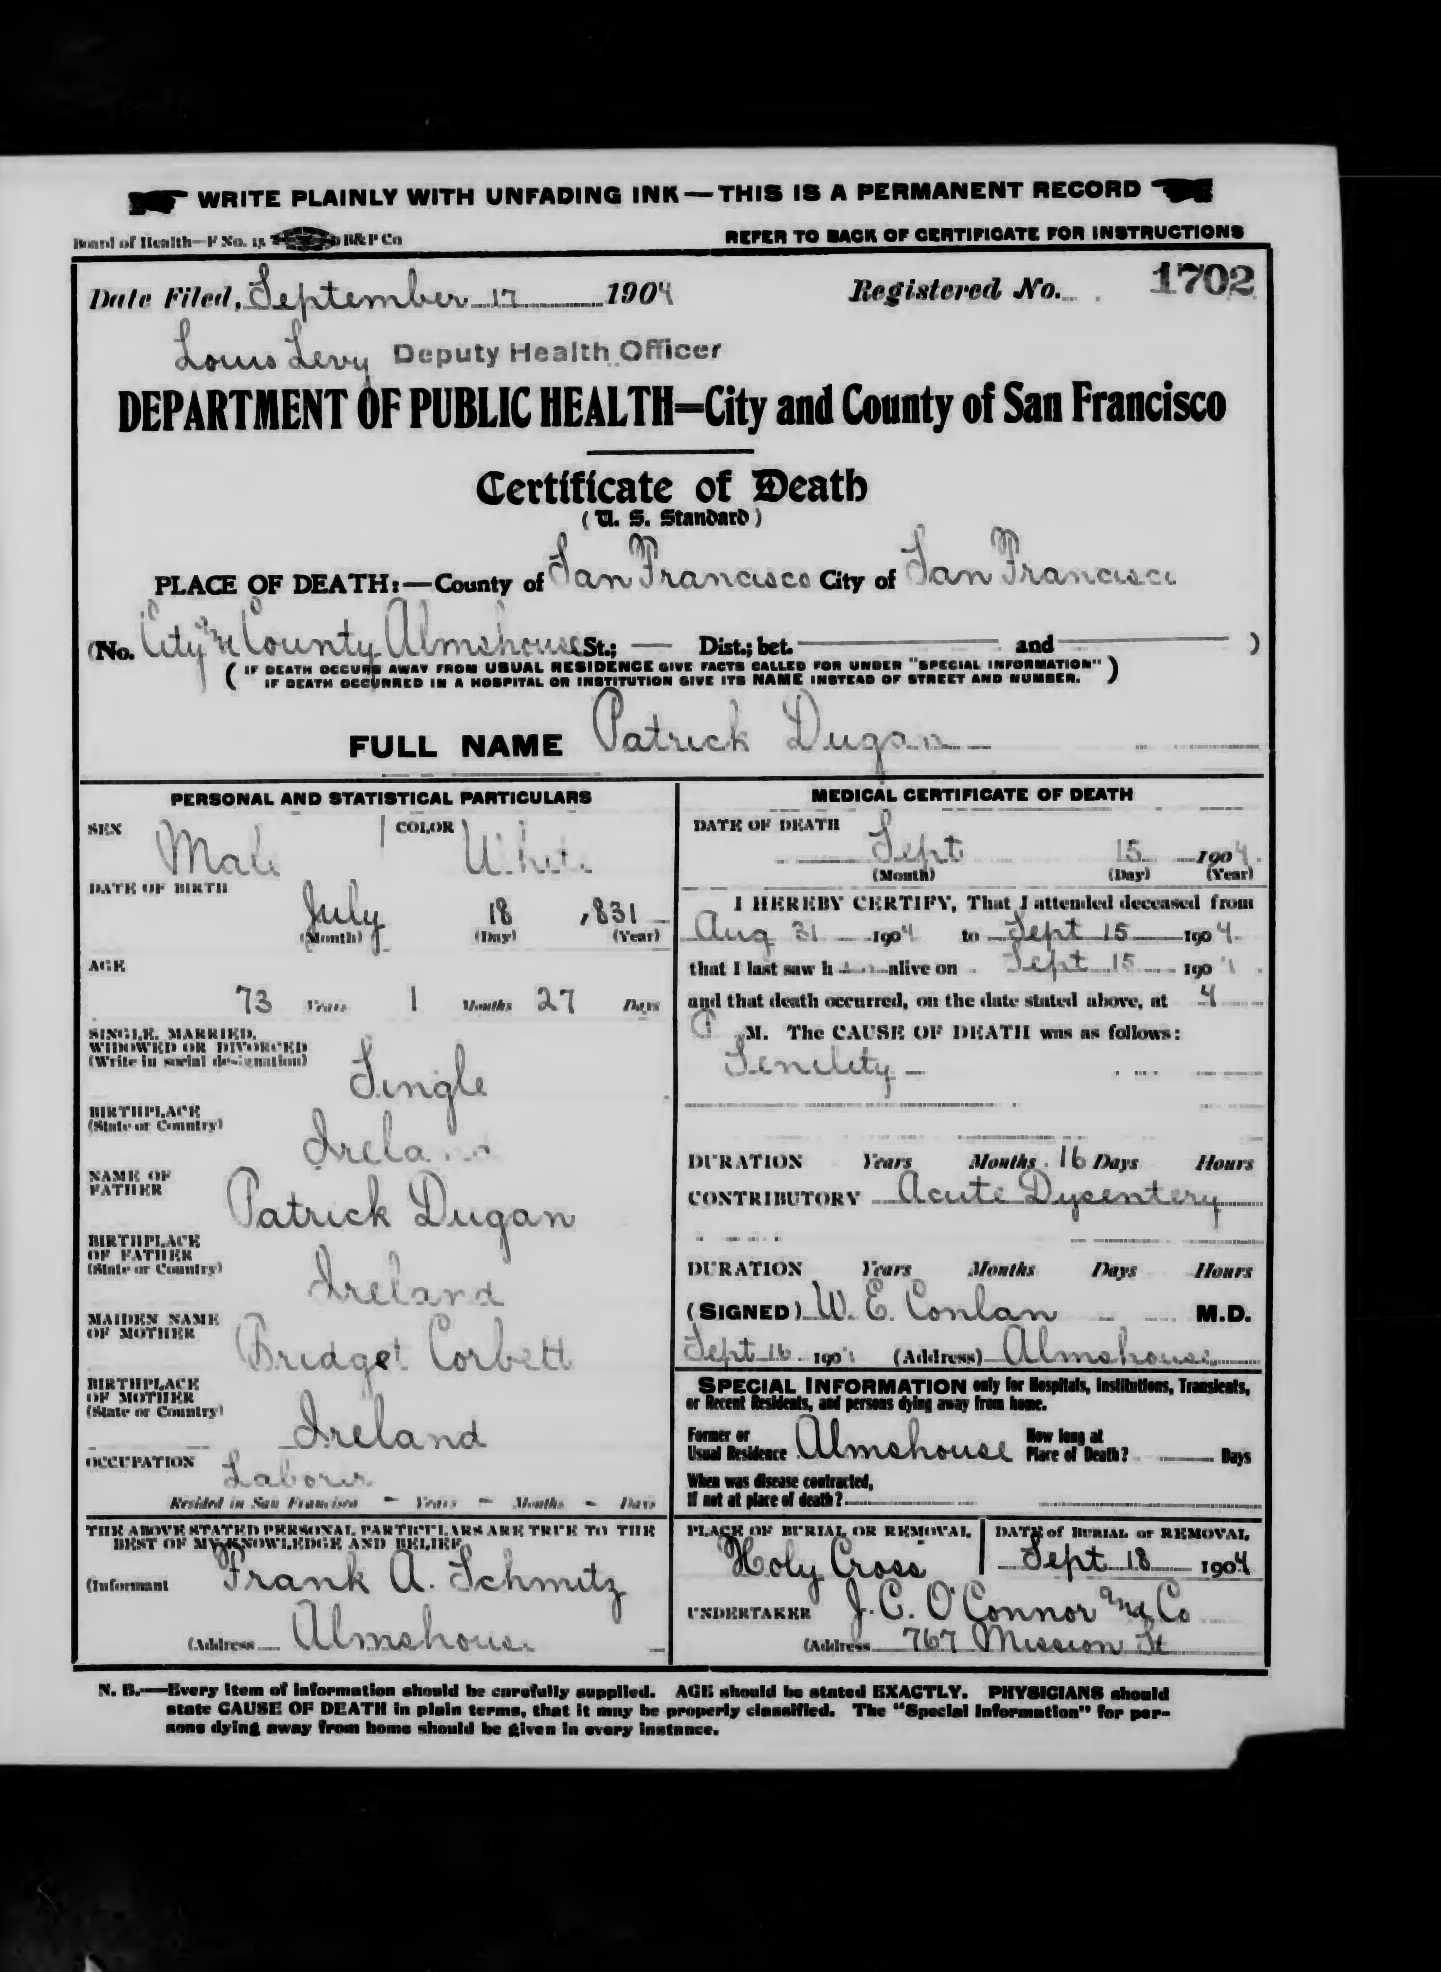 WRITE PLAINLY WITH UNFADING INK—THIS IS A PERMANENT RECORD
Board of Health—F No. 15 B&P Co
REFER TO BACK OF CERTIFICATE FOR INSTRUCTIONS
Date Filed, September 17 1904 Registered No. 1702
Louis Levy Deputy Health Officer
DEPARTMENT OF PUBLIC HEALTH=City and County of San Francisco
Certificate of Death
(U. S. Standard)
PLACE OF DEATH:—County of San Francisco City of San Francisco
(No. City and County Almshouse St.; — Dist.; bet. — and — )
( IF DEATH OCCURS AWAY FROM USUAL RESIDENCE GIVE FACTS CALLED FOR UNDER "SPECIAL INFORMATION" )
IF DEATH OCCURRED IN A HOSPITAL OR INSTITUTION GIVE ITS NAME INSTEAD OF STREET AND NUMBER.
FULL NAME Patrick Dugan
PERSONAL AND STATISTICAL PARTICULARS
SEX Male COLOR White
DATE OF BIRTH
July 18 1831
(Month) (Day) (Year)
AGE
73 Years 1 Months 27 Days
SINGLE, MARRIED,
WIDOWED OR DIVORCED
(Write in social designation)
Single
BIRTHPLACE
(State or Country)
Ireland
NAME OF
FATHER
Patrick Dugan
BIRTHPLACE
OF FATHER
(State or Country)
Ireland
MAIDEN NAME
OF MOTHER
Bridget Corbett
BIRTHPLACE
OF MOTHER
(State or Country)
Ireland
OCCUPATION Laborer
Resided in San Francisco - Years - Months - Days
THE ABOVE STATED PERSONAL PARTICULARS ARE TRUE TO THE
BEST OF MY KNOWLEDGE AND BELIEF
(Informant Frank A. Schmitz
(Address Almshouse
MEDICAL CERTIFICATE OF DEATH
DATE OF DEATH
Sept 15 1904
(Month) (Day) (Year)
I HEREBY CERTIFY, That I attended deceased from
Aug 31 1904 to Sept 15 1904
that I last saw him alive on Sept 15 1904
and that death occurred, on the date stated above, at 4
P M. The CAUSE OF DEATH was as follows:
Senility
DURATION Years Months 16 Days Hours
CONTRIBUTORY Acute Dysentery
DURATION Years Months Days Hours
(SIGNED) W. E. Conlan M.D.
Sept 16 1904 (Address) Almshouse
SPECIAL INFORMATION only for Hospitals, Institutions, Transients,
or Recent Residents, and persons dying away from home.
Former or
Usual Residence Almshouse
How long at
Place of Death? Days
When was disease contracted,
If not at place of death?
PLACE OF BURIAL OR REMOVAL
Holy Cross
DATE of BURIAL or REMOVAL
Sept 18 1904
UNDERTAKER J. C. O'Connor and Co
(Address 767 Mission St
N. B.—Every item of information should be carefully supplied. AGE should be stated EXACTLY. PHYSICIANS should
state CAUSE OF DEATH in plain terms, that it may be properly classified. The "Special Information" for per-
sons dying away from home should be given in every instance.